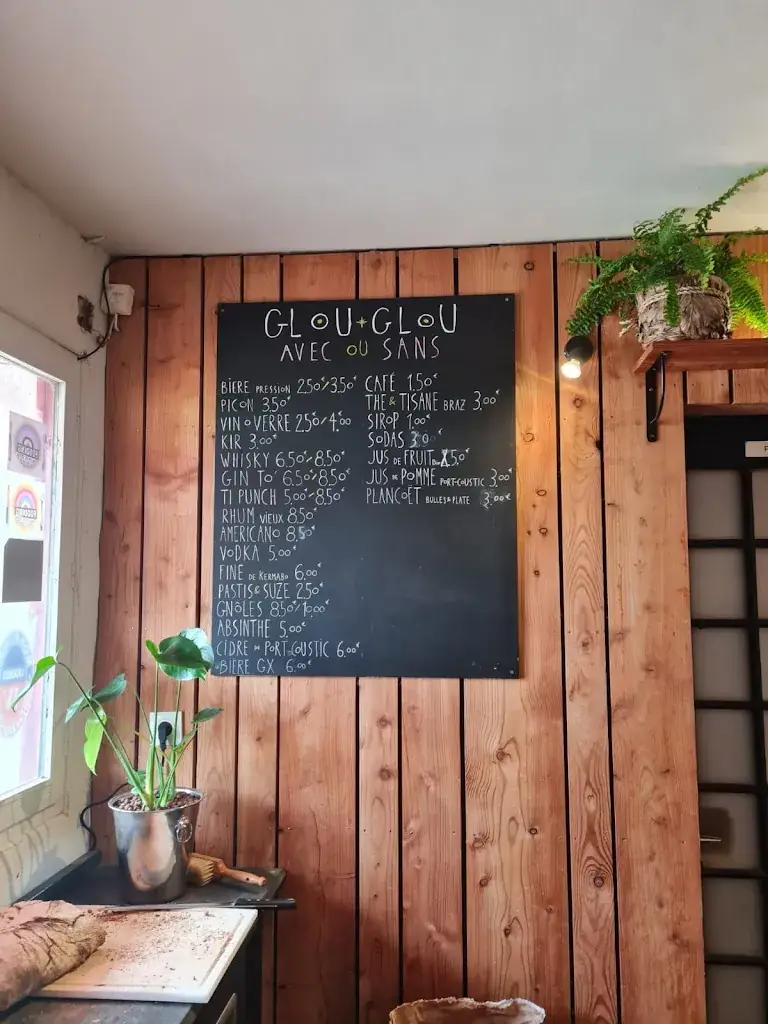 GLOU+GLOU
AVEC OU SANS
BIÈRE PRESSION 2.50€/3.50€
PICON 3.50€
VIN O VERRE 2.50€/4.00
KIR 3.00€
WHISKY 6.50€/8.50€
GIN TO' 6.50€/8.50€
TI PUNCH 5.00€/8.50€
RHUM VIEUX 8.50€
AMERICANO 8.50€
VODKA 5.00€
FINE DE KERMABO 6.00€
PASTIS & SUZE 2.50€
GNÔLES 8.50€/
ABSINTHE 5.00€
CIDRE DE PORT-COUSTIC 6.00€
BIÈRE GX 6.00€
CAFÉ 1.50€
THÉ & TISANE BRAZ 3.00€
SIROP 1.00€
SODAS
JUS DE FRUIT
JUS DE POMME PORT-COUSTIC 3.00€
PLANCOËT BULLES & PLATE 3.00€